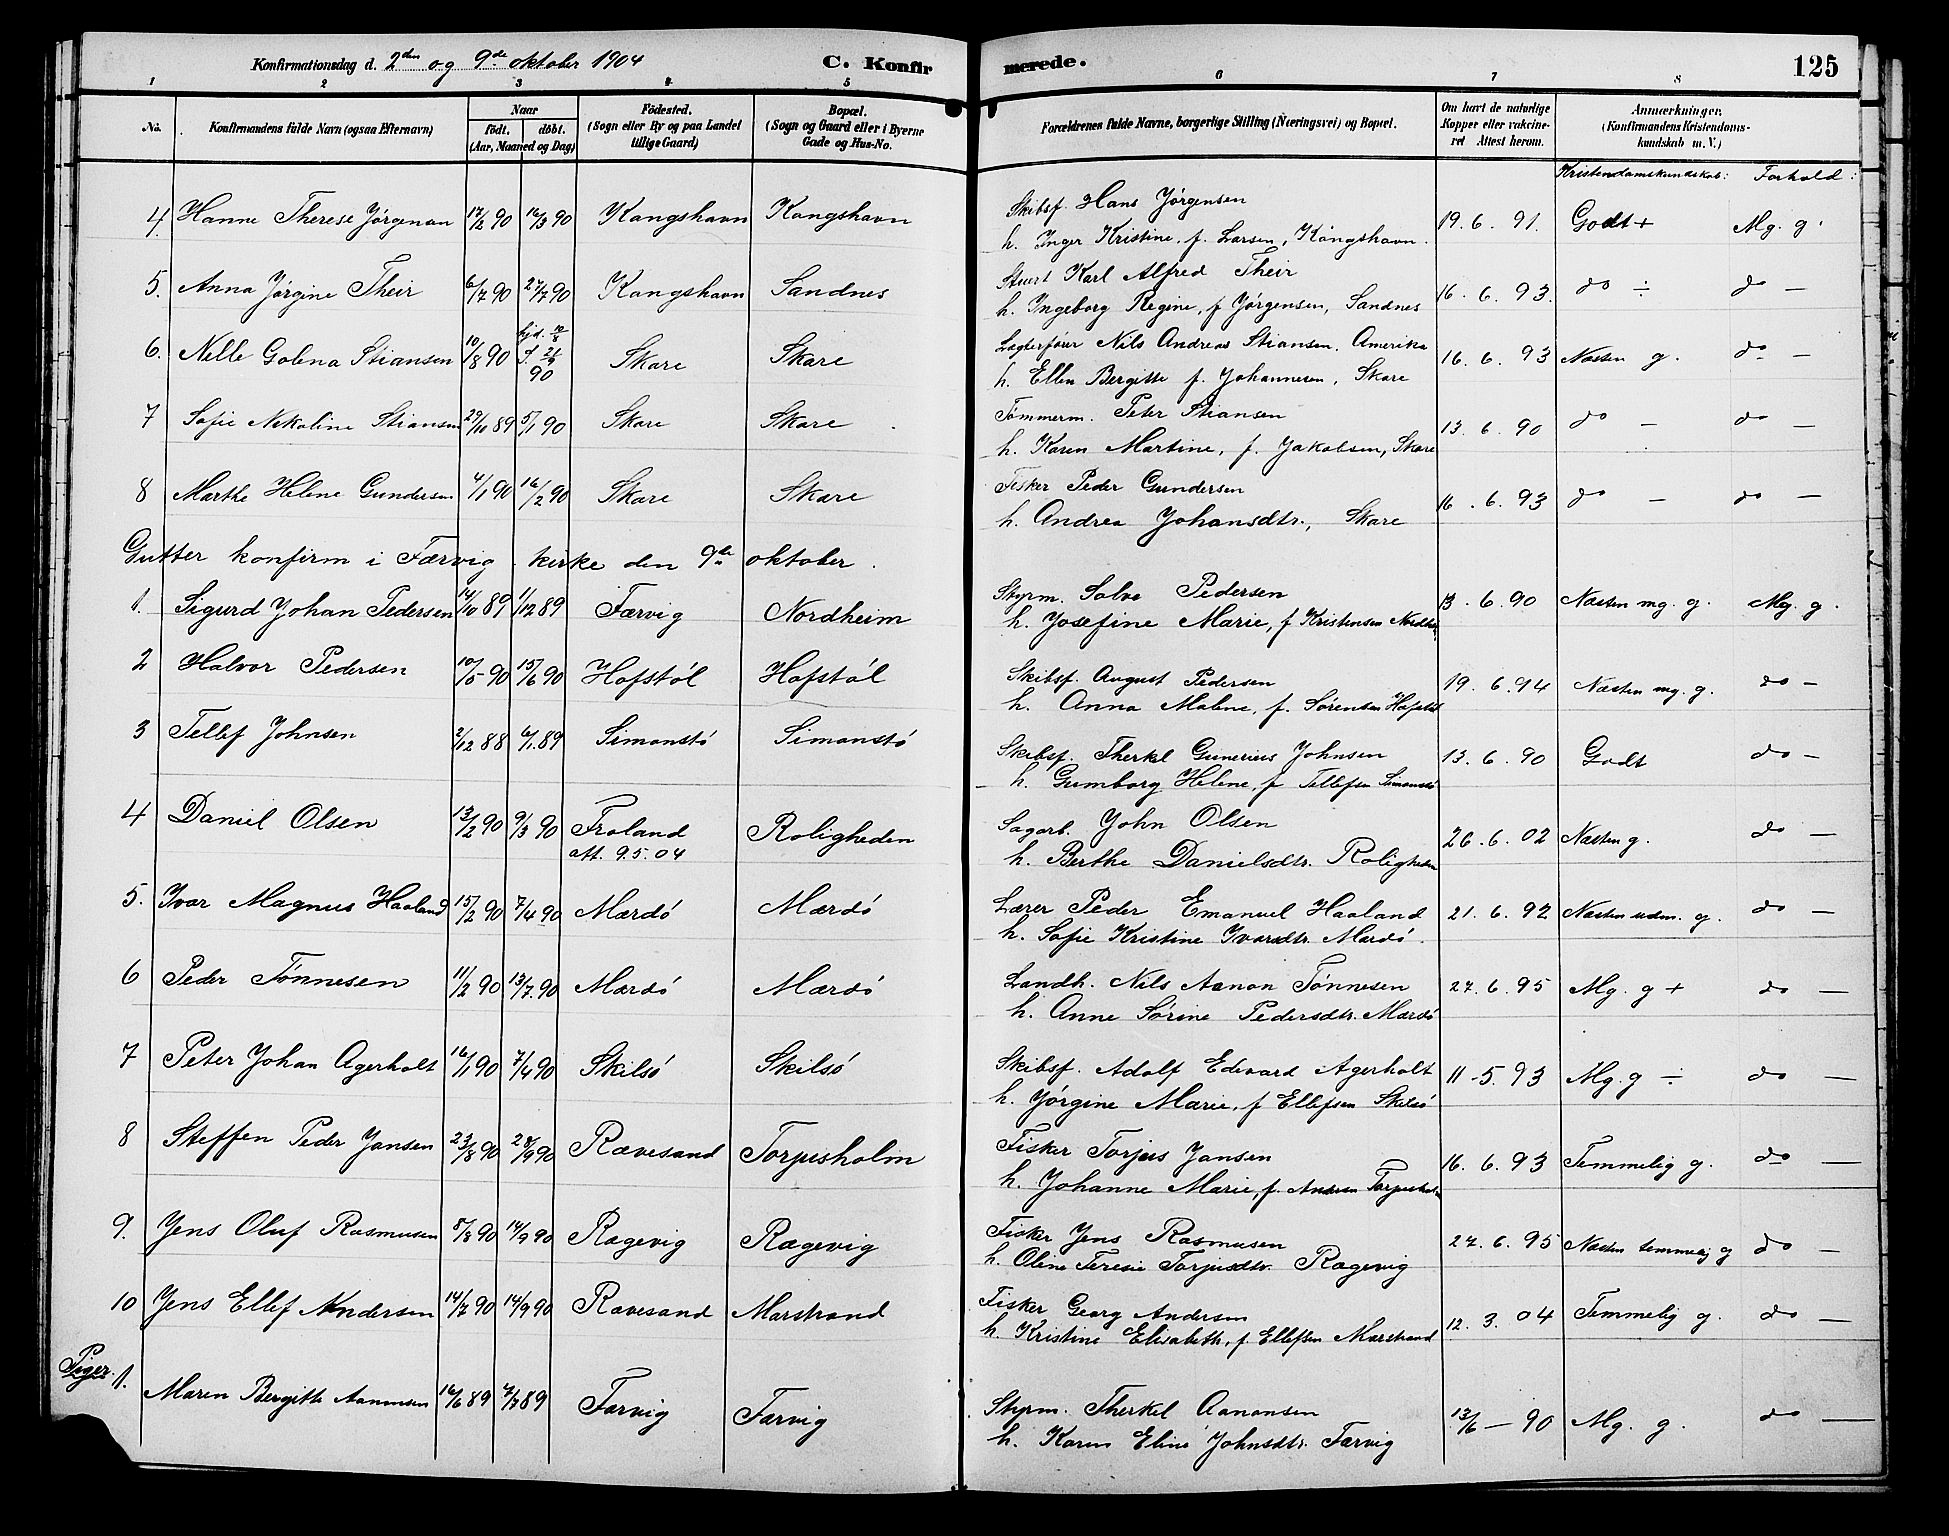 Konfirmationsdag d. 2den og 9de oktober 1904 C. Konfirmerede. 125
1 2 3 4 5 6 7 8
No. Konfirmandens fulde Navn (ogsaa Efternavn) Naar født, døbt. (Aar, Maaned og Dag) Fødested. (Sogn eller By og paa Landet tillige Gaard) Bopæl. (Sogn og Gaard eller i Byerne Gade og Hus-No. Forældrenes fulde Navne, borgerlige Stilling (Næringsvei) og Bopæl. Om havt de naturlige Kopper eller vakcineret Attest herom. Anmærkninger. (Konfirmandens Kristendomskundskab m. V.)
Kristendomskundskab: Forhold:
4 Hanne Therese Jørgensen 17/2 90 16/3 90 Kongshavn Kongshavn Skibsf. Hans Jørgensen 19. 6. 91. Godt + Mg. g.
h. Inger Kristine, f. Larsen, Kongshavn.
5. Anna Jørgine Their 6/7 90 27/7 90 Kongshavn Sandnes Stuert Karl Alfred Their 16. 6. 93. do ÷ do —
h. Ingeborg Regine, f Jørgensen, Sandnes
6. Nelle Golena Stiansen 10/8 90 hjd. 90 Skare Skare Nils Andreas Stiansen. Amerika 16. 6. 93 Næsten g. do —
h. Ellen Bergitte f. Johannesen, Skare
7 Sofie Nekoline Stiansen 29/11 89 5/1 90 Skare Skare Tømmerm. Peter Stiansen 13. 6. 90 do — do —
h. Karen Martine, f. Jakobsen, Skare
8 Marthe Helene Gundersen 4/1 90 16/2 90 Skare Skare Fisker Peder Gundersen 16. 6. 93 do — do —
h. Andrea Johansdtr., Skare
Gutter konfirm i Færvig kirke den 9de oktober.
1. Sigurd Johan Pedersen 14/10 89 1/12 89 Færvig Nordheim Styrm. Solve Pedersen 13. 6. 90 Næsten mg. g. Mg. g.
h. Josefine Marie, f Kristensen
2 Halvor Pedersen 10/5 90 15/6 90 Hofstøl Hofstøl Skibsf. August Pedersen 19. 6. 94 Næsten mg. g. do —
h. Anna Malene, f. Sørensen Hofstøl
3 Tellef Johnsen 2/12 88 6/1 89 Simonstø Simonstø Skibsf. Therkel Gunerius Johnsen 13. 6. 90 Godt do —
h. Gumborg Helene, f Tellefsen Simonstø
4 Daniel Olsen 13/2 90 9/3 90 Froland Roligheden Sagarb. John Olsen 26. 6. 02 Næsten g. do —
att. 9.5.04 h. Berthe Danielsdtr. Roligheden
5. Ivar Magnus Haaland 15/2 90 7/4 90 Mærdø Mærdø Lærer Peder Emanuel Haaland 21. 6. 92 Næsten udm. g. do —
h. Sofie Kristine Ivarsdtr. Mærdø.
6 Peder Tønnesen 11/2 90 13/7 90 Mærdø Mærdø Landh. Nils Aanon Tønnesen 27. 6. 95 Mg. g + do —
h. Anne Sørine Pedersdtr. Mærdø
7 Peter Johan Agerholt 16/1 90 7/4 90 Skilsø Skilsø Skibsf. Adolf Edvard Agerholt 11-5. 93 Mg. g ÷ do —
h. Jørgine Marie, f Ellefsen Skilsø
8 Steffen Peder Jansen 23/8 90 28/9 90 Rævesand Torjusholm Fisker Torjus Jansen 16. 6. 93 Temmelig g. do —
h. Johanne Marie, f. Andersen
9. Jens Oluf Rasmusen 5/8 90 14/9 90 Rægevig Rægevig Fisker Jens Rasmusen 27. 6. 95 Næsten temmelig g do —
h. Oline Teresie Torjusdtr. Rægevig
10 Jens Ellef Andersen 14/7 90 14/9 90 Rævesand Marstrand Fisker Georg Andersen 12. 3. 04 Temmelig g. do —
h. Kristine Elisabeth, f. Ellefsen Marstrand
Piger.
1. Maren Bergitte Aanonsen 16/6 89 7/7 89 Færvig Færvig Styrm. Therkel Aanonsen 13/6 — 90 Mg. g. do —
h. Karen Eline Johnsdtr. Færvig